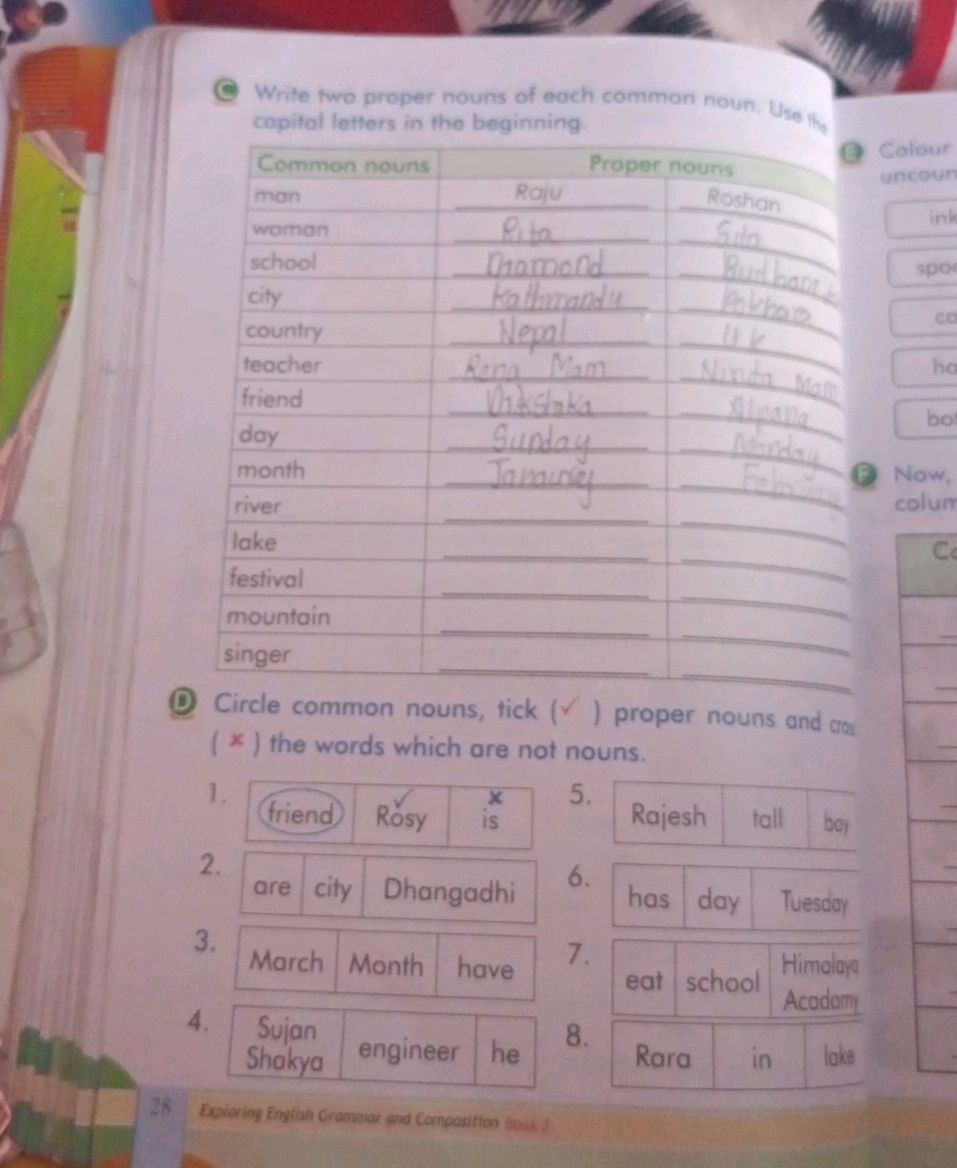 C Write two proper nouns of each common noun. Use the
capital letters in the beginning.
Common nouns Proper nouns
man Raju Roshan
woman Rita Sita
school Diamond
city Kathmandu Pokhara
country Nepal
teacher Rena Mam Niruta Mam
friend Alpana
day Sunday Monday
month
river
lake
festival
mountain
singer
D Circle common nouns, tick (✓) proper nouns and cros
(✗) the words which are not nouns.
1. friend Rosy is
2. are city Dhangadhi
3. March Month have
4. Sujan Shakya engineer he
5. Rajesh tall boy
6. has day Tuesday
7. eat school Himalaya Acadamy
8. Rara in lake
28 Exploring English Grammar and Composition Book 2
E Colour
uncoun
ink
spoo
ca
ha
bot
F Now,
colum
Co